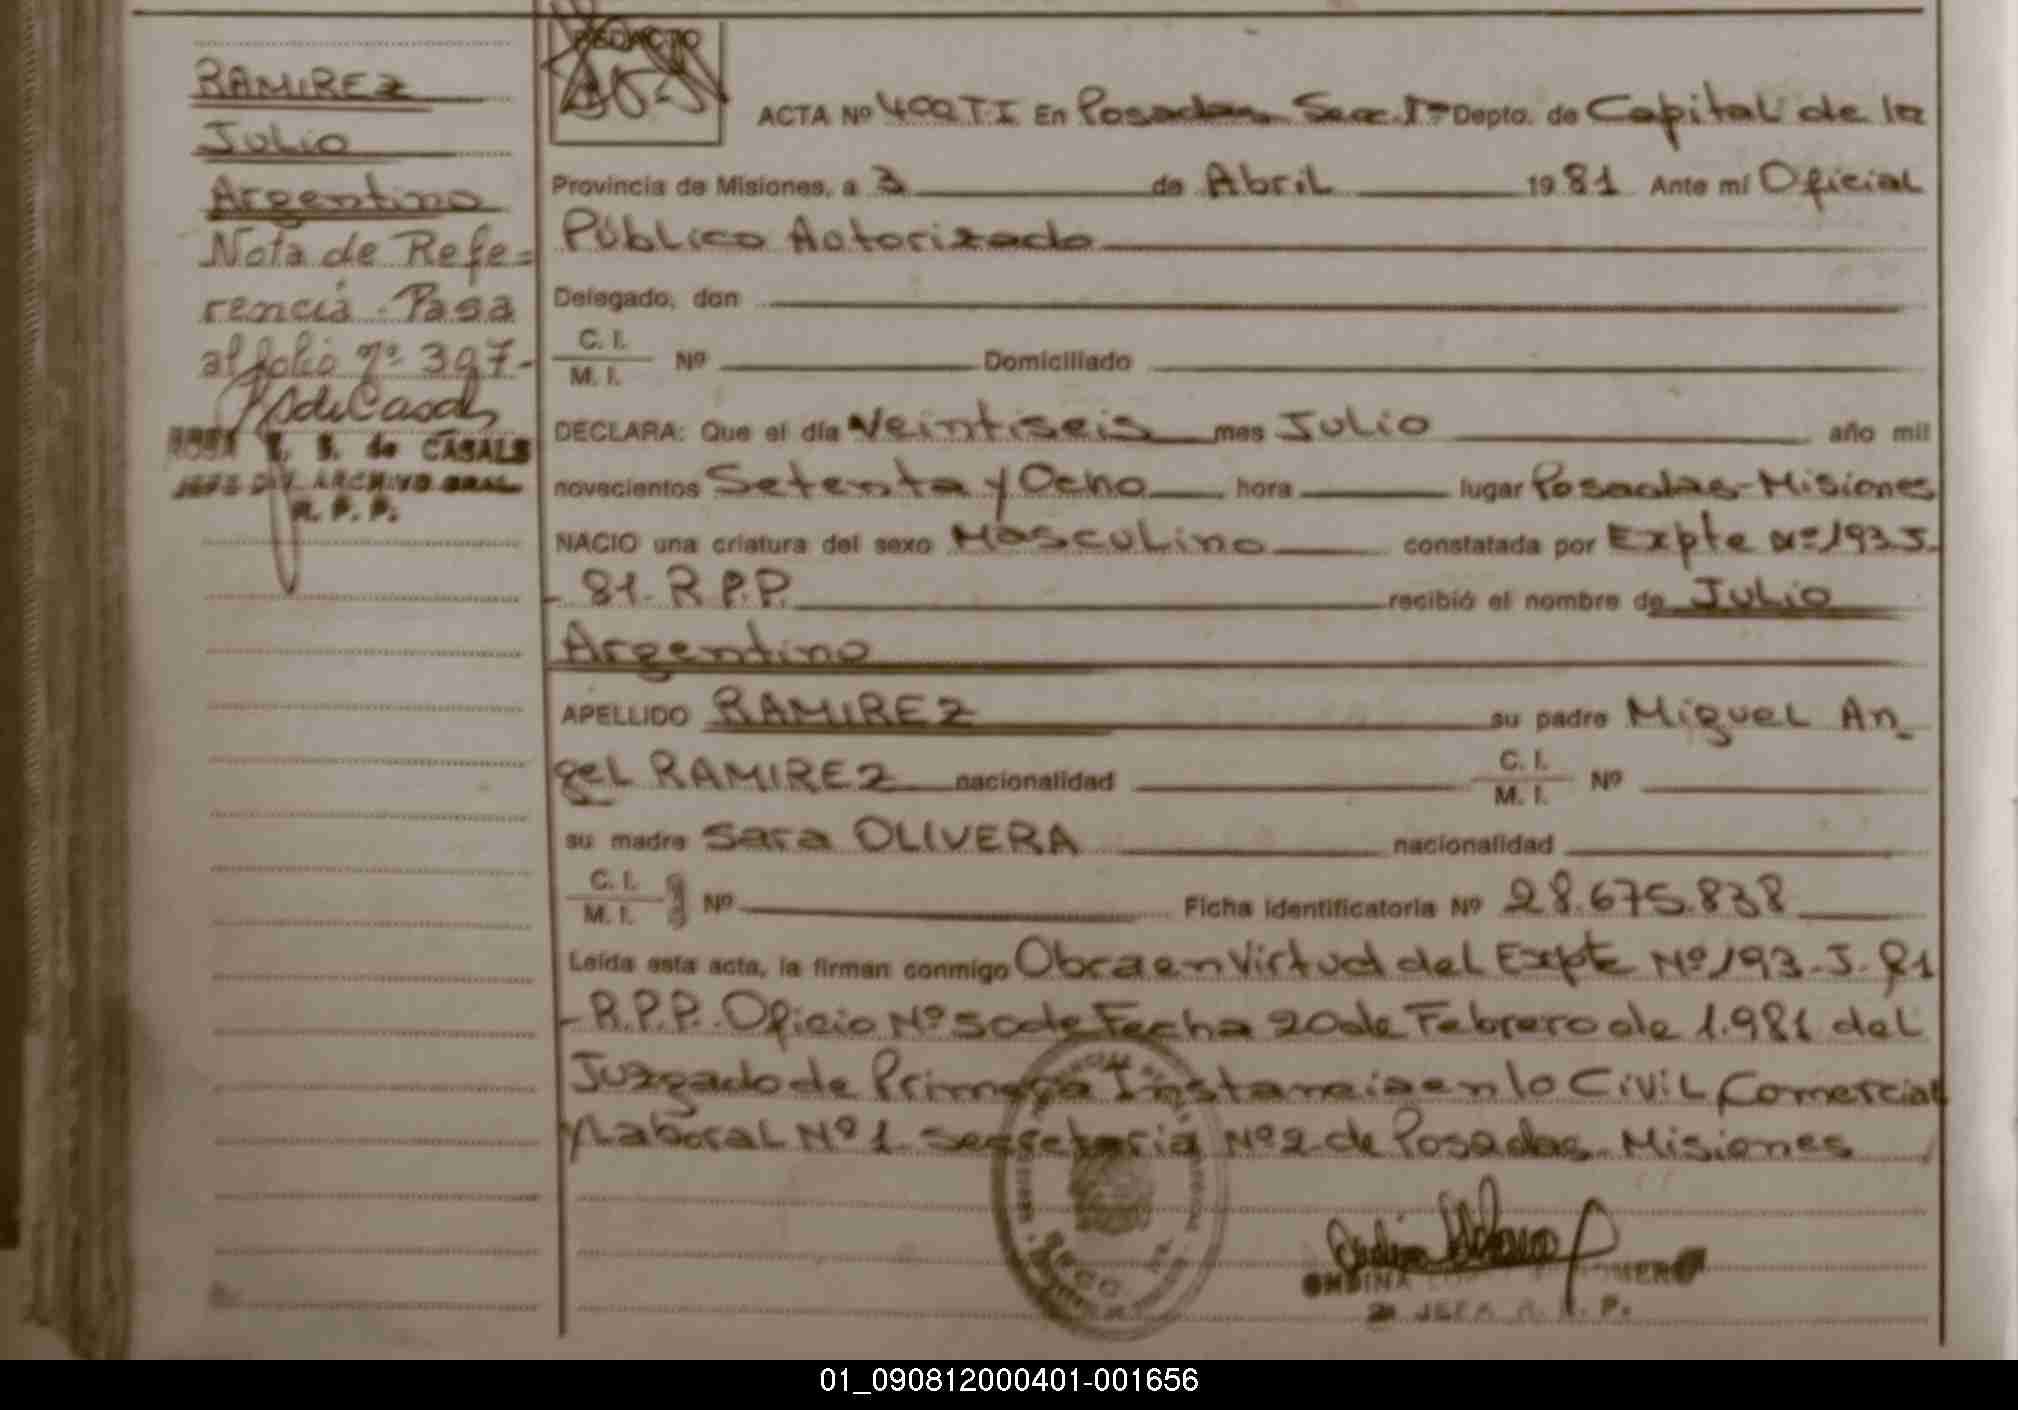 RAMIREZ
Julio
Argentino
Nota de Refe=
rencia - Pasa
al folio nº 397-
S. de CASALS
JEFE DIV. ARCHIVO GRAL
R. P. P.
ACTA Nº 400 T.I En Posadas Secc. 1ª Depto. de Capital de la
Provincia de Misiones, a 3 de Abril 1981 Ante mí Oficial
Público Autorizado
Delegado, don
C. I.
M. I. Nº Domiciliado
DECLARA: Que el día Veintiseis mes Julio año mil
novecientos Setenta y Ocho hora lugar Posadas-Misiones
NACIO una criatura del sexo Masculino constatada por Expte Nº 193.J.
- 81- R.P.P. recibió el nombre de Julio
Argentino
APELLIDO RAMIREZ su padre Miguel An_
gel RAMIREZ nacionalidad C. I.
M. I. Nº
su madre Sara OLIVERA nacionalidad
C. I.
M. I. Nº Ficha identificatoria Nº 28.675.838
Leída esta acta, la firman conmigo Obra en Virtud del Expte Nº 193-J-81
- R.P.P. Oficio Nº 50 de Fecha 20 de Febrero de 1.981 del
Juzgado de Primera Instancia en lo Civil Comercial
y Laboral Nº 1 Secretaria Nº 2 de Posadas - Misiones
01_090812000401-001656